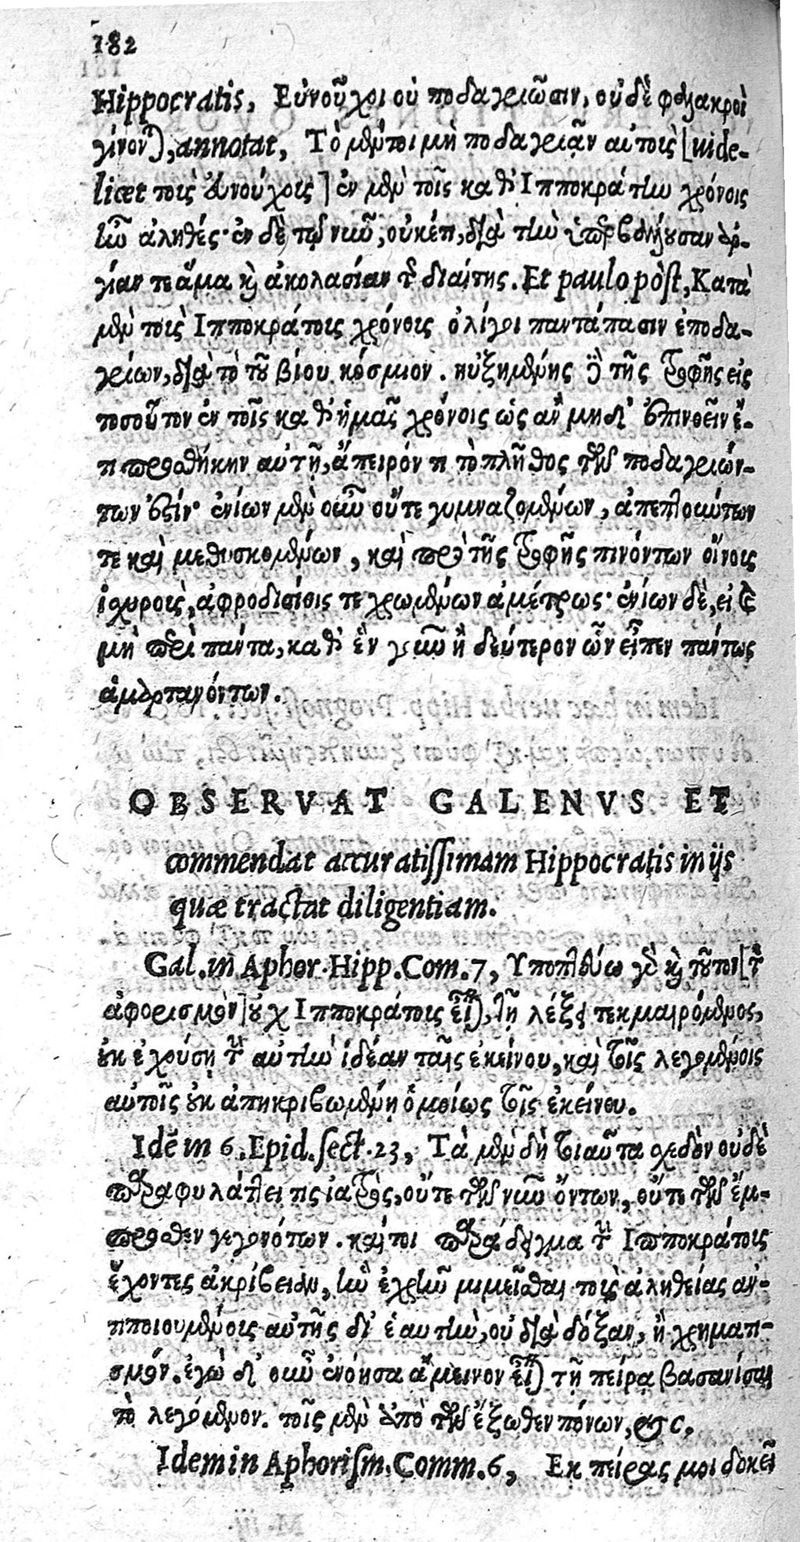 182
Hippocratis, Εὐνοῦχοι οὐ ποδαγριῶσιν, οὐδὲ φαλακροὶ
γίνονται, annotat, Τὸ μέντοι μὴ ποδαγριᾷν αὐτοὺς [uide-
licet τοὺς εὐνούχους] ἐν μὲν τοῖς καθ' Ἱπποκράτην χρόνοις
ἦν ἀληθές· ἐν δὲ τῷ νῦν, οὐκέτι, διὰ τὴν ὑπερβάλλουσαν ἀρ-
γίαν τε ἅμα καὶ ἀκολασίαν τῆς διαίτης. Et paulo pòst, Κατὰ
μὲν τοὺς Ἱπποκράτους χρόνους ὀλίγοι παντάπασιν ἐποδα-
γρίων, διὰ τὸ τοῦ βίου κόσμιον. ηὐξημένης δὲ τῆς τρυφῆς εἰς
τοσοῦτον ἐν τοῖς καθ' ἡμᾶς χρόνοις ὡς ἂν μηδ' ἐπινοεῖν ἔ-
τι προσθήκην αὐτῇ, ἄπειρόν τι τὸ πλῆθος τῶν ποδαγριών-
των ἐστίν· ἐνίων μὲν οὖν οὔτε γυμναζομένων, ἀπεπτούντων
τε καὶ μεθυσκομένων, καὶ πρὸ τῆς τροφῆς πινόντων οἴνους
ἰσχυροὺς, ἀφροδισίοις τε χρωμένων ἀμέτρως· ἐνίων δὲ, εἰ καὶ
μὴ περὶ πάντα, καθ' ἓν γοῦν ἢ δεύτερον ὧν εἶπον πάντως
ἁμαρτανόντων.
OBSERVAT GALENVS ET
commendat accuratissimam Hippocratis in ijs
quæ tractat diligentiam.
Gal. in Aphor. Hipp. Com. 7, Ὑποπτεύω γὰρ καὶ τοῦτον [τὸν
ἀφορισμὸν] οὐχ Ἱπποκράτους εἶναι, τῇ λέξει τεκμαιρόμενος,
οὐκ ἐχούσῃ τὴν αὐτὴν ἰδέαν ταῖς ἐκείνου, καὶ τοῖς λεγομένοις
αὐτοῖς οὐκ ἀπηκριβωμένῃ ὁμοίως τοῖς ἐκείνου.
Idẽ in 6. Epid. sect. 23, Τὰ μὲν δὴ τοιαῦτα σχεδὸν οὐδὲ
παραφυλάττει τις ἰατρὸς, οὔτε τῶν νῦν ὄντων, οὔτε τῶν ἔμ-
προσθεν γεγονότων. καίτοι παράδειγμα τὴν Ἱπποκράτους
ἔχοντες ἀκρίβειαν, ἣν ἐχρῆν μιμεῖσθαι τοὺς ἀληθείας ἀν-
τιποιουμένους αὐτῆς δι' ἑαυτὴν, οὐ διὰ δόξαν, ἢ χρηματι-
σμόν. ἐγὼ δ' οὖν ἐνόησα ἄμεινον εἶναι τῇ πείρᾳ βασανίσαι
τὸ λεγόμενον. τοῖς μὲν ἀπὸ τῶν ἔξωθεν πόνων, &c.
Idem in Aphorism. Comm. 6, Ἐκ πείρας μοι δοκεῖ